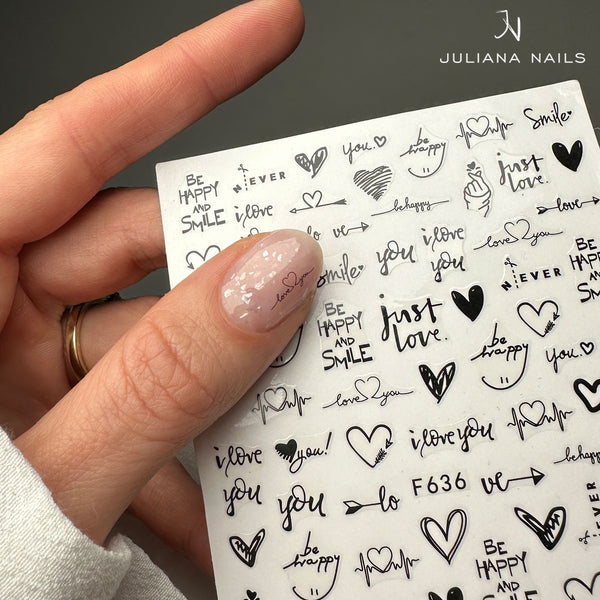 JN
JULIANA NAILS
you.
be happy
Smile
BE HAPPY AND SMILE
NEVER
just love.
i love
be happy
love
lo ve
you
i love you
love you
NEVER
BE HAPPY AND SMILE
smile
love you
BE HAPPY AND SMILE
just love.
be happy
you
love you
i love you
you!
i love you
be happy
you
lo
F636
ve
be happy
BE HAPPY AND SMILE